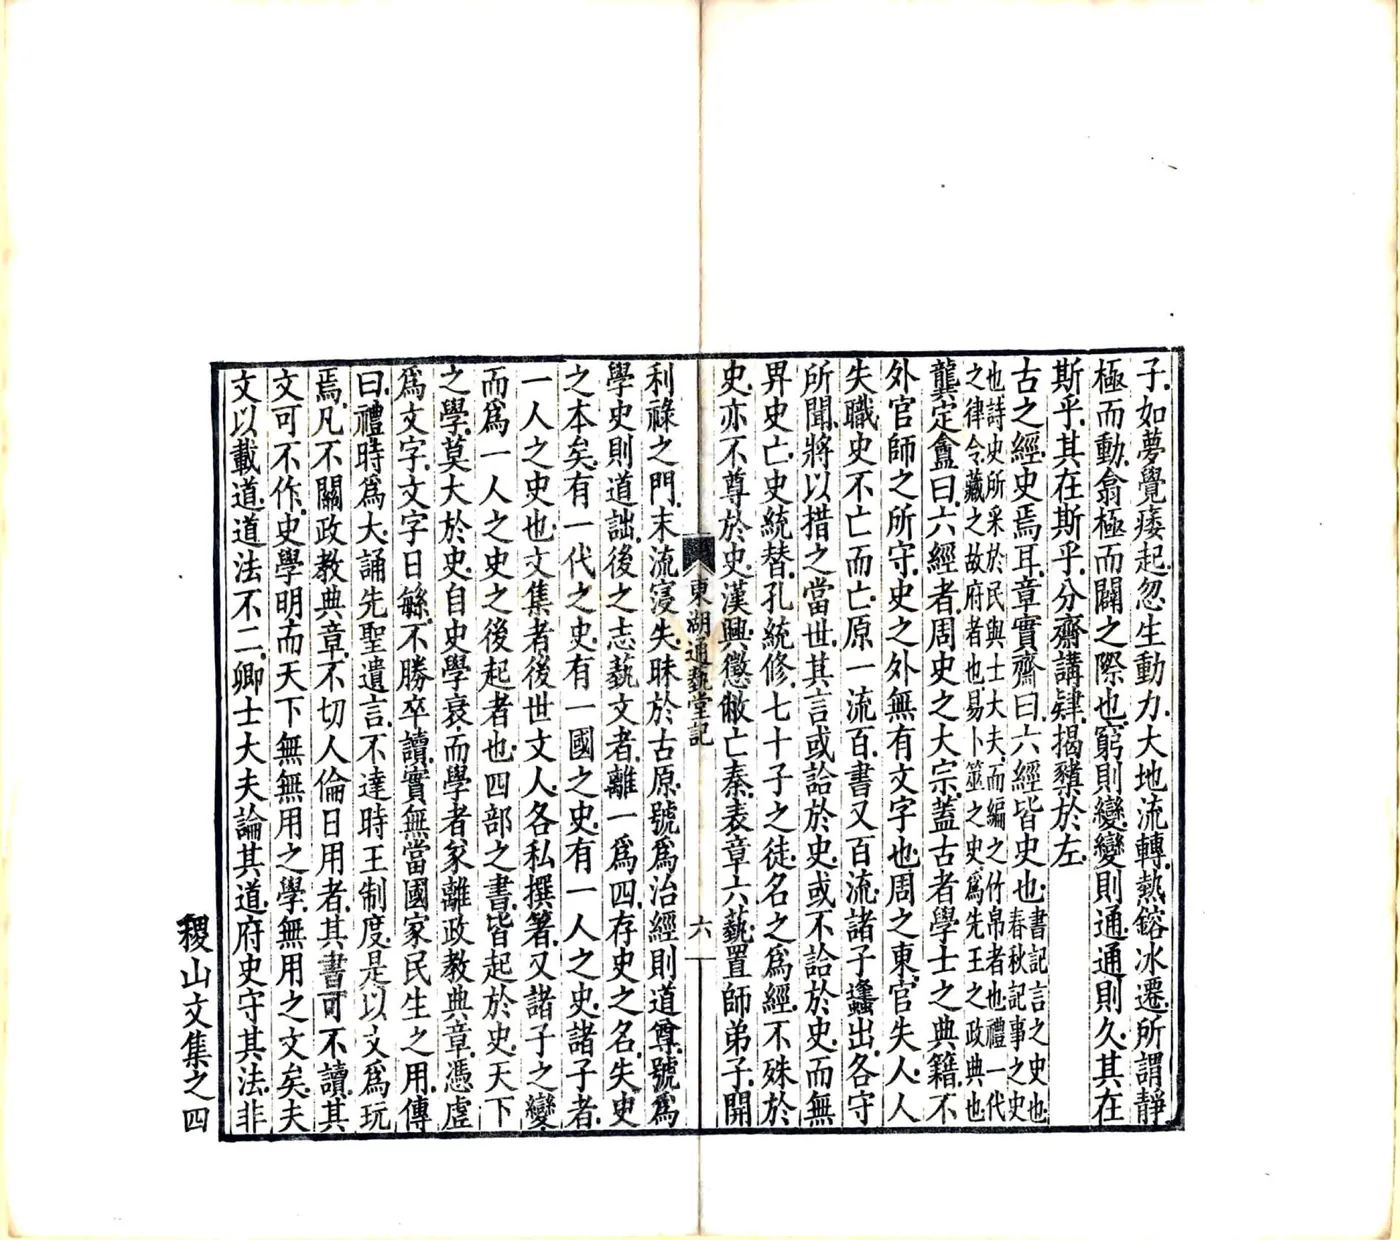 子.如夢覺.痿起.忽生動力.大地流轉.熱鎔冰遷.所謂靜
極而動.翕極而闢之際也.窮則變.變則通.通則久.其在
斯乎.其在斯乎.分齋講肄.揭櫫於左.
古之經.史焉耳.章實齋曰.六經皆史也.書記言之史也.春秋記事之史
也.詩史所采於民.與士大夫.而編之竹帛者也.禮一代
之律令.藏之故府者也.易卜筮之史.爲先王之政典也.
龔定盦曰.六經者.周史之大宗.蓋古者學士之典籍.不
外官師之所守.史之外無有文字也.周之東.官失人.人
失職.史不亡而亡.原一流百.書又百流.諸子蠭出.各守
所聞.將以措之當世.其言或詥於史.或不詥於史.而無
畀史亡.史統替.孔統修.七十子之徒.名之爲經.不殊於
史.亦不尊於史.漢興.懲敝亡秦.表章六藝.置師弟子.開
東湖通藝堂記 六
利祿之門.末流寖失.昧於古原.號爲治經則道尊.號爲
學史則道詘.後之志藝文者.離一爲四.存史之名.失史
之本矣.有一代之史.有一國之史.有一人之史.諸子者.
一人之史也.文集者.後世文人.各私撰著.又諸子之變.
而爲一人之史之後起者也.四部之書.皆起於史.天下
之學.莫大於史.自史學衰.而學者寀離政教典章.憑虛
爲文字.文字日緐.不勝卒讀.實無當國家民生之用.傳
曰.禮時爲大.誦先聖遺言.不達時王制度.是以文爲玩
焉.凡不關政教典章.不切人倫日用者.其書可不讀.其
文可不作.史學明.而天下無無用之學.無用之文矣.夫
文以載道.道法不二.卿士大夫論其道.府史守其法.非
稷山文集之四